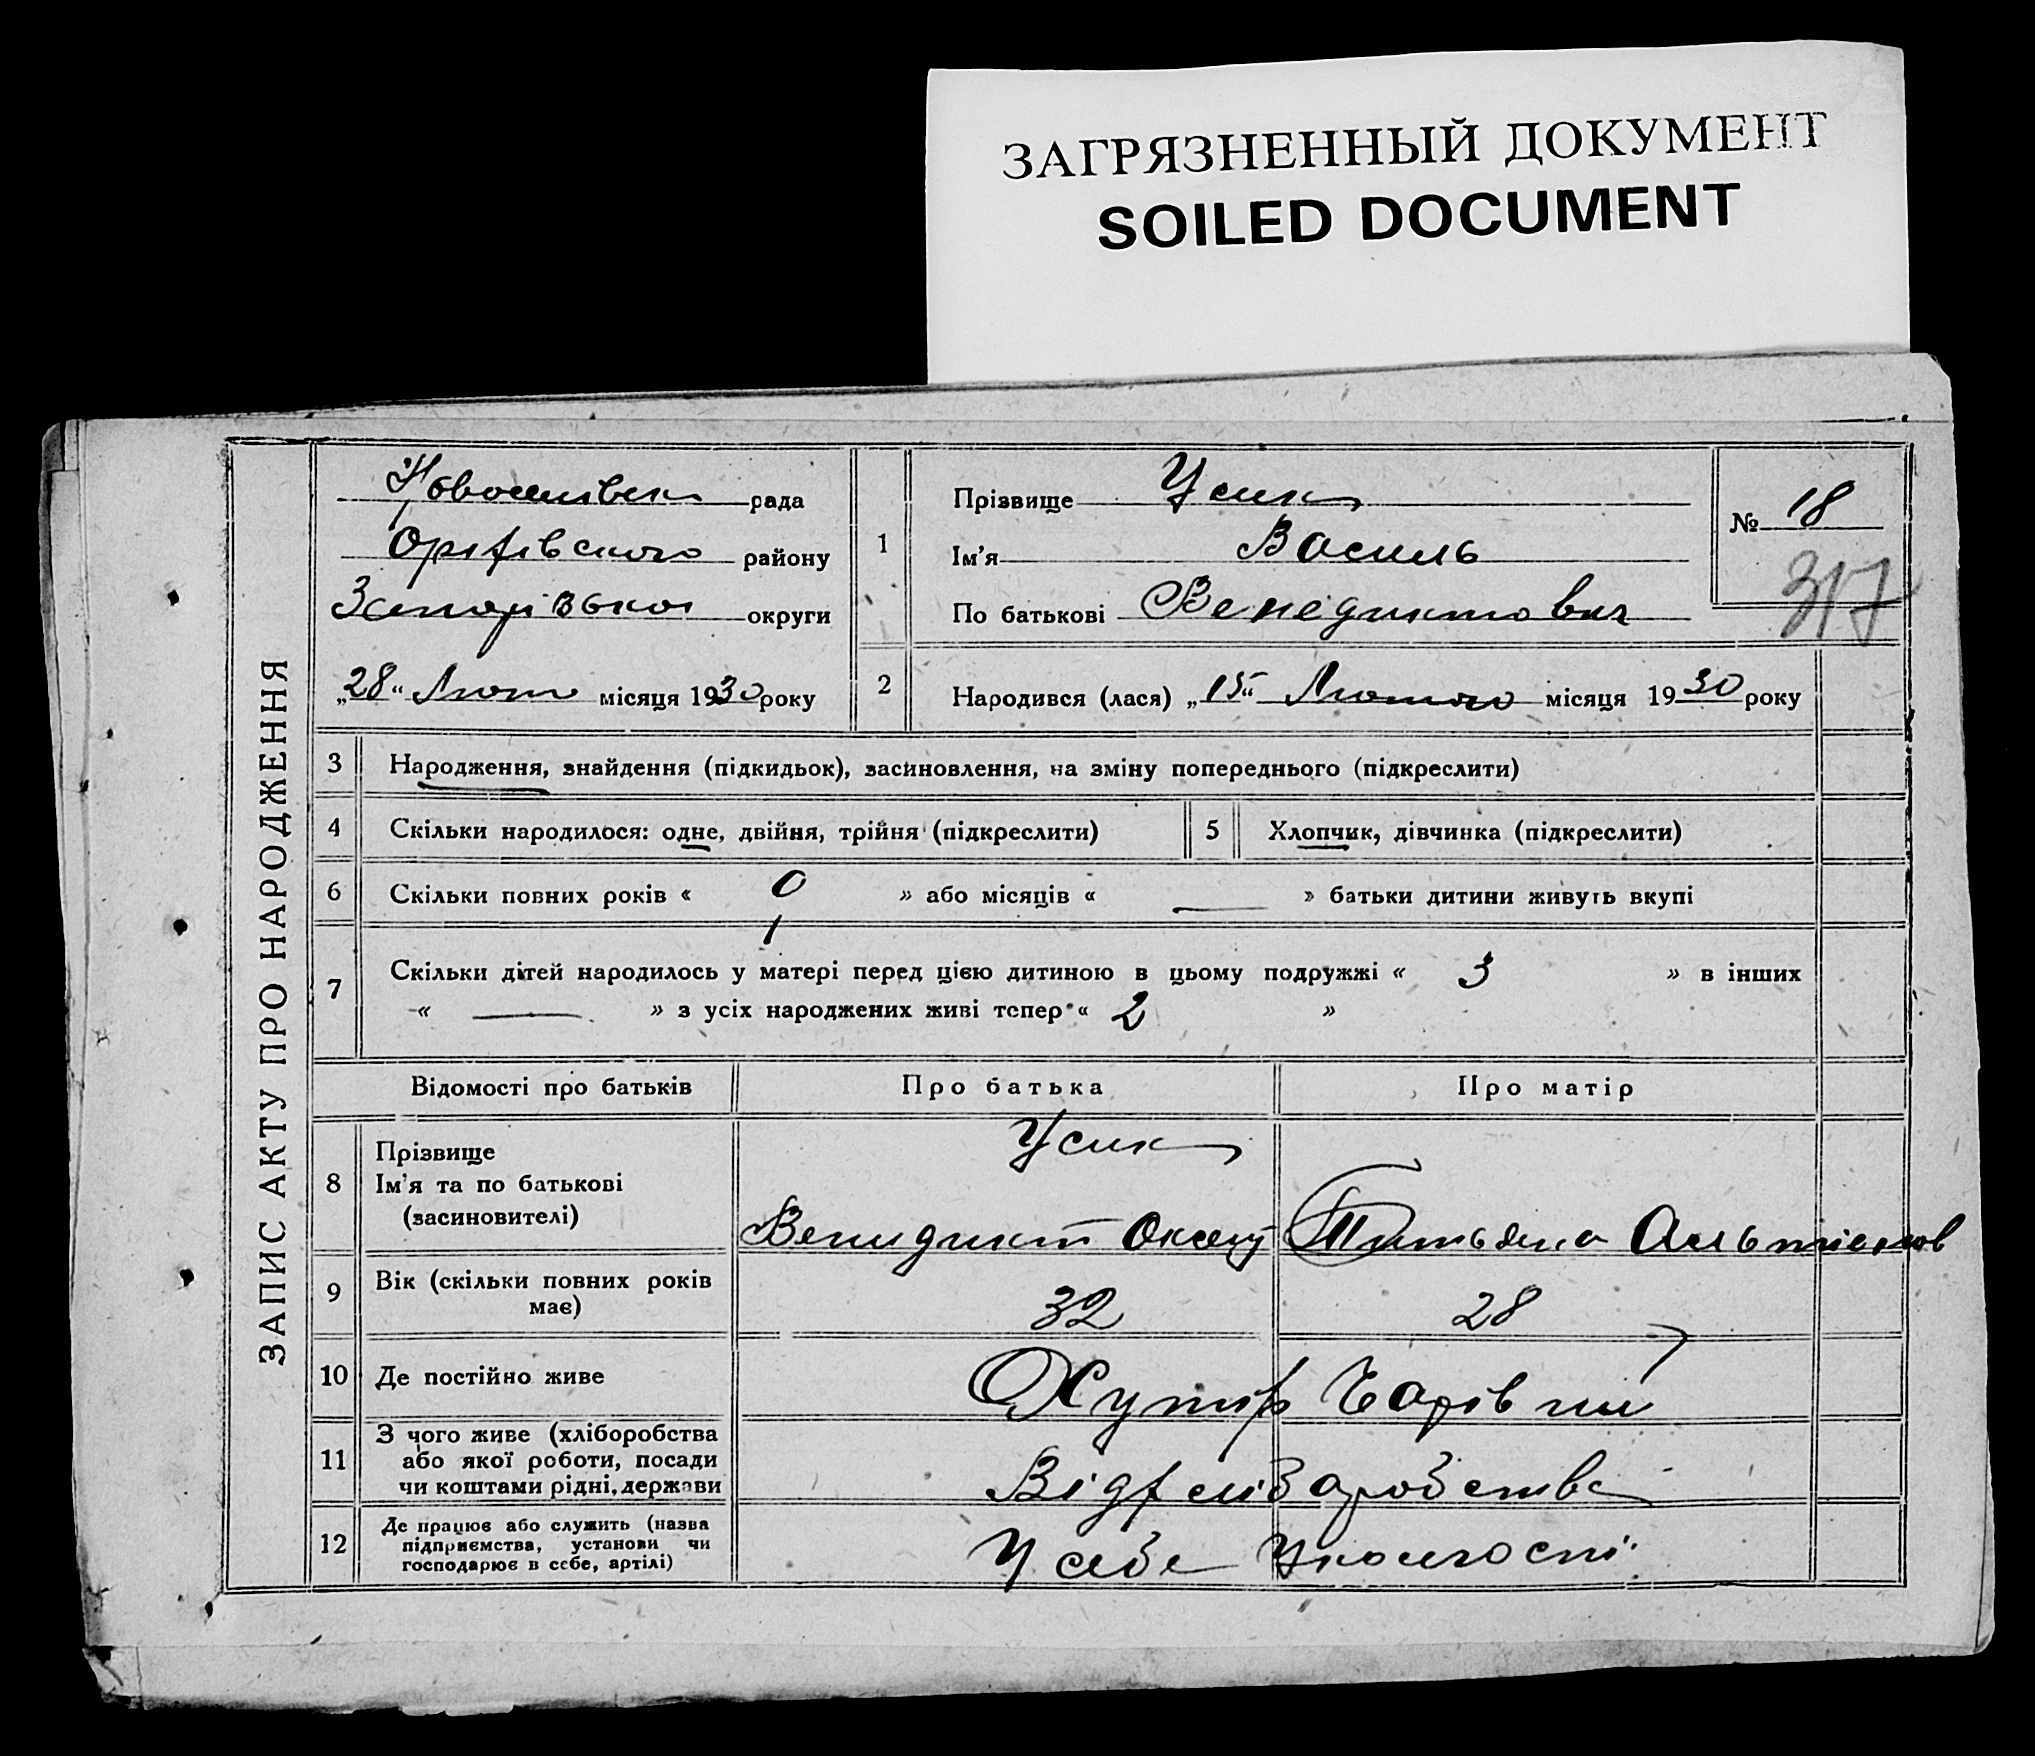 ЗАГРЯЗНЕННЫЙ ДОКУМЕНТ
SOILED DOCUMENT
ЗАПИС АКТУ ПРО НАРОДЖЕННЯ
рада
Оріхівского району
округи
„28“ Лютого місяця 1930 року
1
Прізвище Усик
Ім'я Василь
По батькові Венедиктович
№ 18
317
2
Народився (лася) „15“ Лютого місяця 1930 року
3 Народження, знайдення (підкидьок), засиновлення, на зміну попереднього (підкреслити)
4 Скільки народилося: одне, двійня, трійня (підкреслити)
5 Хлопчик, дівчинка (підкреслити)
6 Скільки повних років « 0 » або місяців « — » батьки дитини живуть вкупі
7 Скільки дітей народилось у матері перед цією дитиною в цьому подружжі « 3 » в інших
« — » з усіх народжених живі тепер « 2 »
Відомості про батьків
Про батька
Про матір
8
Прізвище
Ім'я та по батькові
(засиновителі)
Усик
Венидикт
9
Вік (скільки повних років
має)
32
28
10 Де постійно живе
Хутір
11
З чого живе (хліборобства
або якої роботи, посади
чи коштами рідні, держави
12
Де працює або служить (назва
підприємства, установи чи
господарює в себе, артілі)
У себе